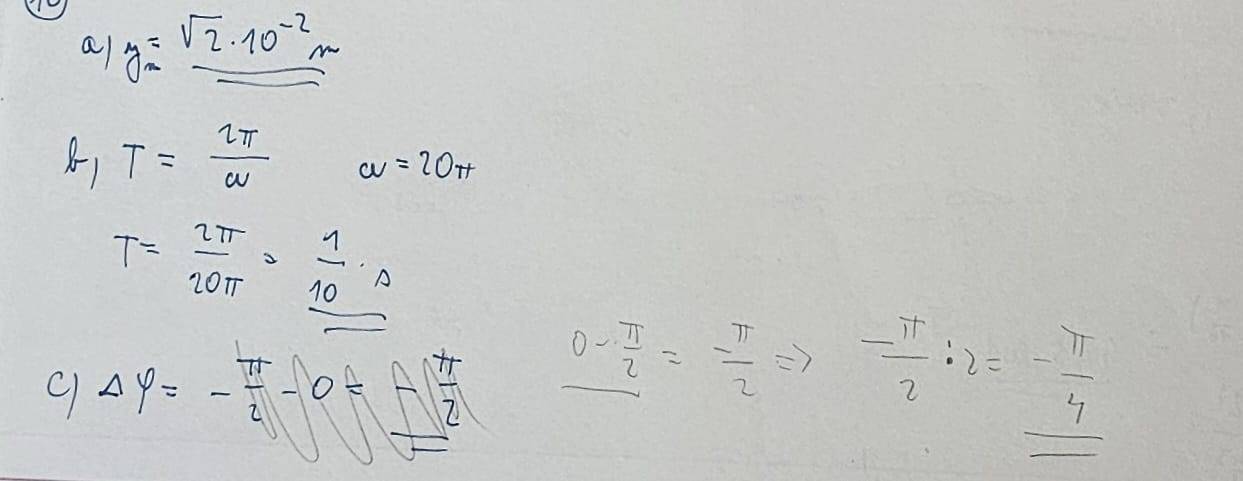 10
a) yₘ = √2 · 10⁻² m
b, T = 2π/ω ω = 20π
T = 2π/20π = 1/10 · s
c) Δφ = - π/2 - 0 = - π/2 0 - π/2 = - π/2 => - π/2 : 2 = - π/4